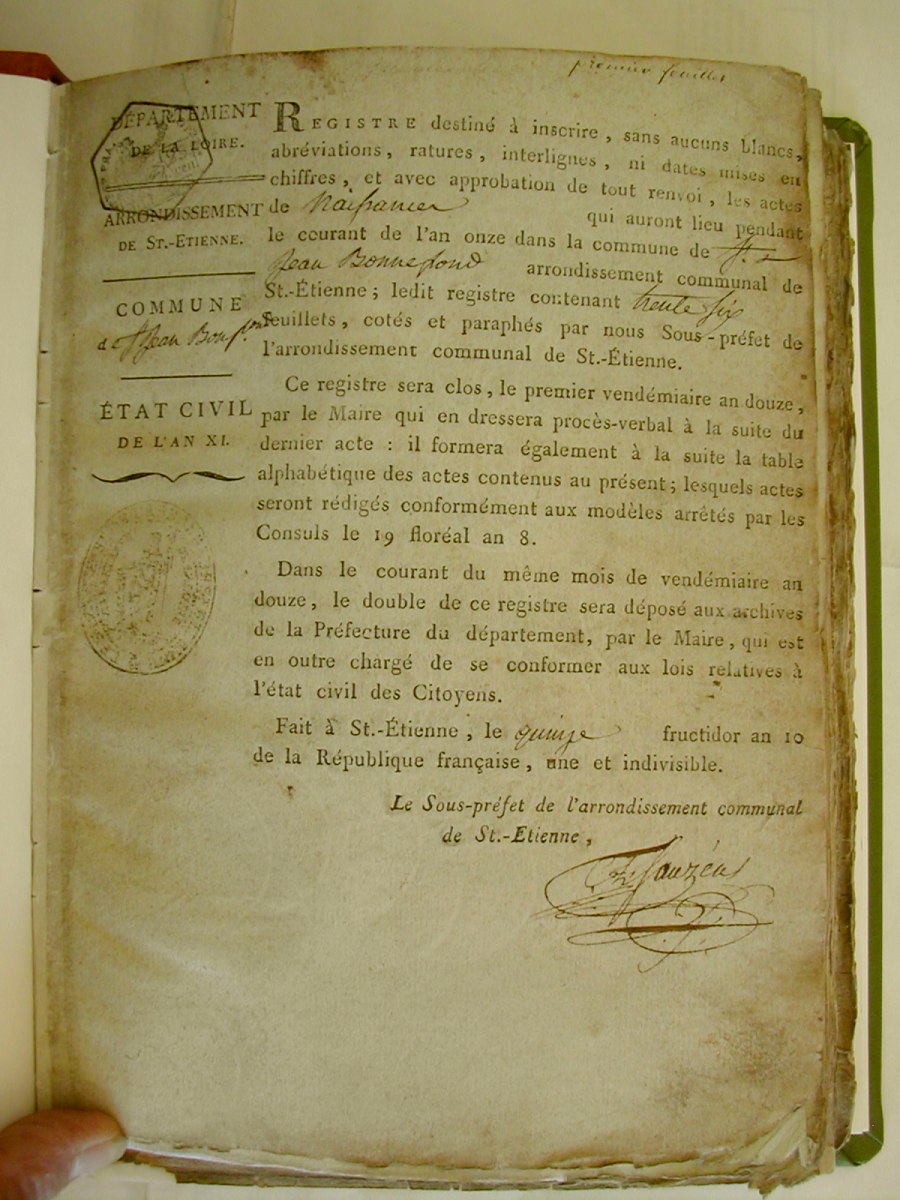 premier feuillet
DÉPARTEMENT
DE LA LOIRE.
ARRONDISSEMENT
DE ST.-ETIENNE.
COMMUNE
de St Jean Bonf.
ÉTAT CIVIL
DE L'AN XI.
REGISTRE destiné à inscrire, sans aucuns blancs,
abréviations, ratures, interlignes, ni dates mises en
chiffres, et avec approbation de tout renvoi, les actes
de Naissances qui auront lieu pendant
le courant de l'an onze dans la commune de St.
Jean Bonnefond arrondissement communal de
St.-Étienne; ledit registre contenant trente six
feuillets, cotés et paraphés par nous Sous-préfet de
l'arrondissement communal de St.-Étienne.
Ce registre sera clos, le premier vendémiaire an douze,
par le Maire qui en dressera procès-verbal à la suite du
dernier acte : il formera également à la suite la table
alphabétique des actes contenus au présent; lesquels actes
seront rédigés conformément aux modèles arrêtés par les
Consuls le 19 floréal an 8.
Dans le courant du même mois de vendémiaire an
douze, le double de ce registre sera déposé aux archives
de la Préfecture du département, par le Maire, qui est
en outre chargé de se conformer aux lois relatives à
l'état civil des Citoyens.
Fait à St.-Étienne, le quinze fructidor an 10
de la République française, une et indivisible.
Le Sous-préfet de l'arrondissement communal
de St.-Etienne,